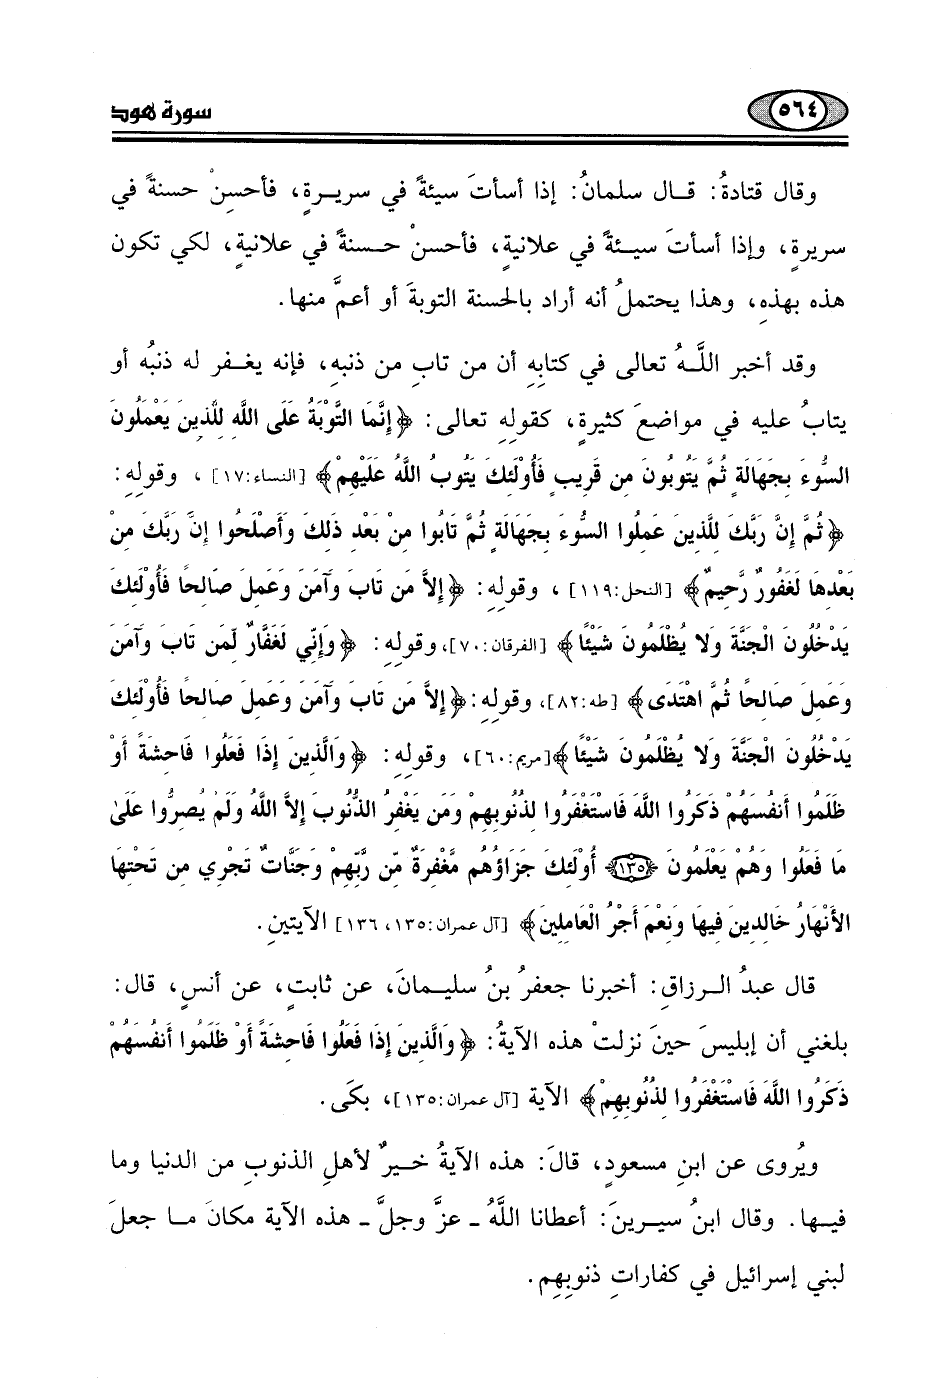 ٥٦٤
سورة هود
وقال قتادةُ: قال سلمانُ: إذا أسأتَ سيئةً في سريرةٍ، فأحسنْ حسنةً في
سريرةٍ، وإذا أسأتَ سيئةً في علانيةٍ، فأحسنْ حسنةً في علانيةٍ، لكي تكون
هذه بهذهِ، وهذا يحتملُ أنه أراد بالحسنة التوبةَ أو أعمَّ منها.
وقد أخبر اللَّهُ تعالى في كتابِه أن من تاب من ذنبِه، فإنه يغفر له ذنبُه أو
يتابُ عليه في مواضعَ كثيرةٍ، كقولِه تعالى: ﴿ إِنَّمَا التَّوْبَةُ عَلَى اللَّهِ لِلَّذِينَ يَعْمَلُونَ
السُّوءَ بِجَهَالَةٍ ثُمَّ يَتُوبُونَ مِن قَرِيبٍ فَأُوْلَئِكَ يَتُوبُ اللَّهُ عَلَيْهِمْ ﴾ [النساء:١٧] ، وقولِه:
﴿ ثُمَّ إِنَّ رَبَّكَ لِلَّذِينَ عَمِلُوا السُّوءَ بِجَهَالَةٍ ثُمَّ تَابُوا مِنْ بَعْدِ ذَلِكَ وَأَصْلَحُوا إِنَّ رَبَّكَ مِنْ
بَعْدِهَا لَغَفُورٌ رَّحِيمٌ ﴾ [النحل:١١٩] ، وقولِه: ﴿ إِلاَّ مَن تَابَ وَآمَنَ وَعَمِلَ صَالِحًا فَأُوْلَئِكَ
يَدْخُلُونَ الْجَنَّةَ وَلا يُظْلَمُونَ شَيْئًا ﴾ [الفرقان:٧٠]، وقولِه: ﴿ وَإِنِّي لَغَفَّارٌ لِّمَن تَابَ وَآمَنَ
وَعَمِلَ صَالِحًا ثُمَّ اهْتَدَى ﴾ [طه:٨٢]، وقولِه: ﴿ إِلاَّ مَن تَابَ وَآمَنَ وَعَمِلَ صَالِحًا فَأُوْلَئِكَ
يَدْخُلُونَ الْجَنَّةَ وَلا يُظْلَمُونَ شَيْئًا ﴾ [مريم:٦٠]، وقولِه: ﴿ وَالَّذِينَ إِذَا فَعَلُوا فَاحِشَةً أَوْ
ظَلَمُوا أَنفُسَهُمْ ذَكَرُوا اللَّهَ فَاسْتَغْفَرُوا لِذُنُوبِهِمْ وَمَن يَغْفِرُ الذُّنُوبَ إِلاَّ اللَّهُ وَلَمْ يُصِرُّوا عَلَىٰ
مَا فَعَلُوا وَهُمْ يَعْلَمُونَ ﴿١٣٥﴾ أُوْلَئِكَ جَزَاؤُهُم مَّغْفِرَةٌ مِّن رَّبِّهِمْ وَجَنَّاتٌ تَجْرِي مِن تَحْتِهَا
الأَنْهَارُ خَالِدِينَ فِيهَا وَنِعْمَ أَجْرُ الْعَامِلِينَ ﴾ [آل عمران:١٣٥، ١٣٦] الآيتينِ.
قال عبدُ الرزاقِ: أخبرنا جعفرُ بنُ سليمانَ، عن ثابتٍ، عن أنسٍ، قال:
بلغني أن إبليسَ حينَ نزلتْ هذه الآيةُ: ﴿ وَالَّذِينَ إِذَا فَعَلُوا فَاحِشَةً أَوْ ظَلَمُوا أَنفُسَهُمْ
ذَكَرُوا اللَّهَ فَاسْتَغْفَرُوا لِذُنُوبِهِمْ ﴾ الآية [آل عمران:١٣٥]، بكَى.
ويُروى عن ابنِ مسعودٍ، قالَ: هذه الآيةُ خيرٌ لأهلِ الذنوبِ من الدنيا وما
فيها. وقال ابنُ سيرينَ: أعطانا اللَّهُ ـ عزَّ وجلَّ ـ هذه الآية مكانَ ما جعلَ
لبني إسرائيل في كفاراتِ ذنوبِهِم.